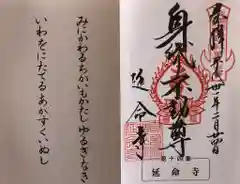 みにかわるちかいもかたし ゆるぎなき
いわをにたてるあかすくいぬし
奉拝 平成廿一年二月廿四日
身代不動尊
延命寺
第十四番
延命寺